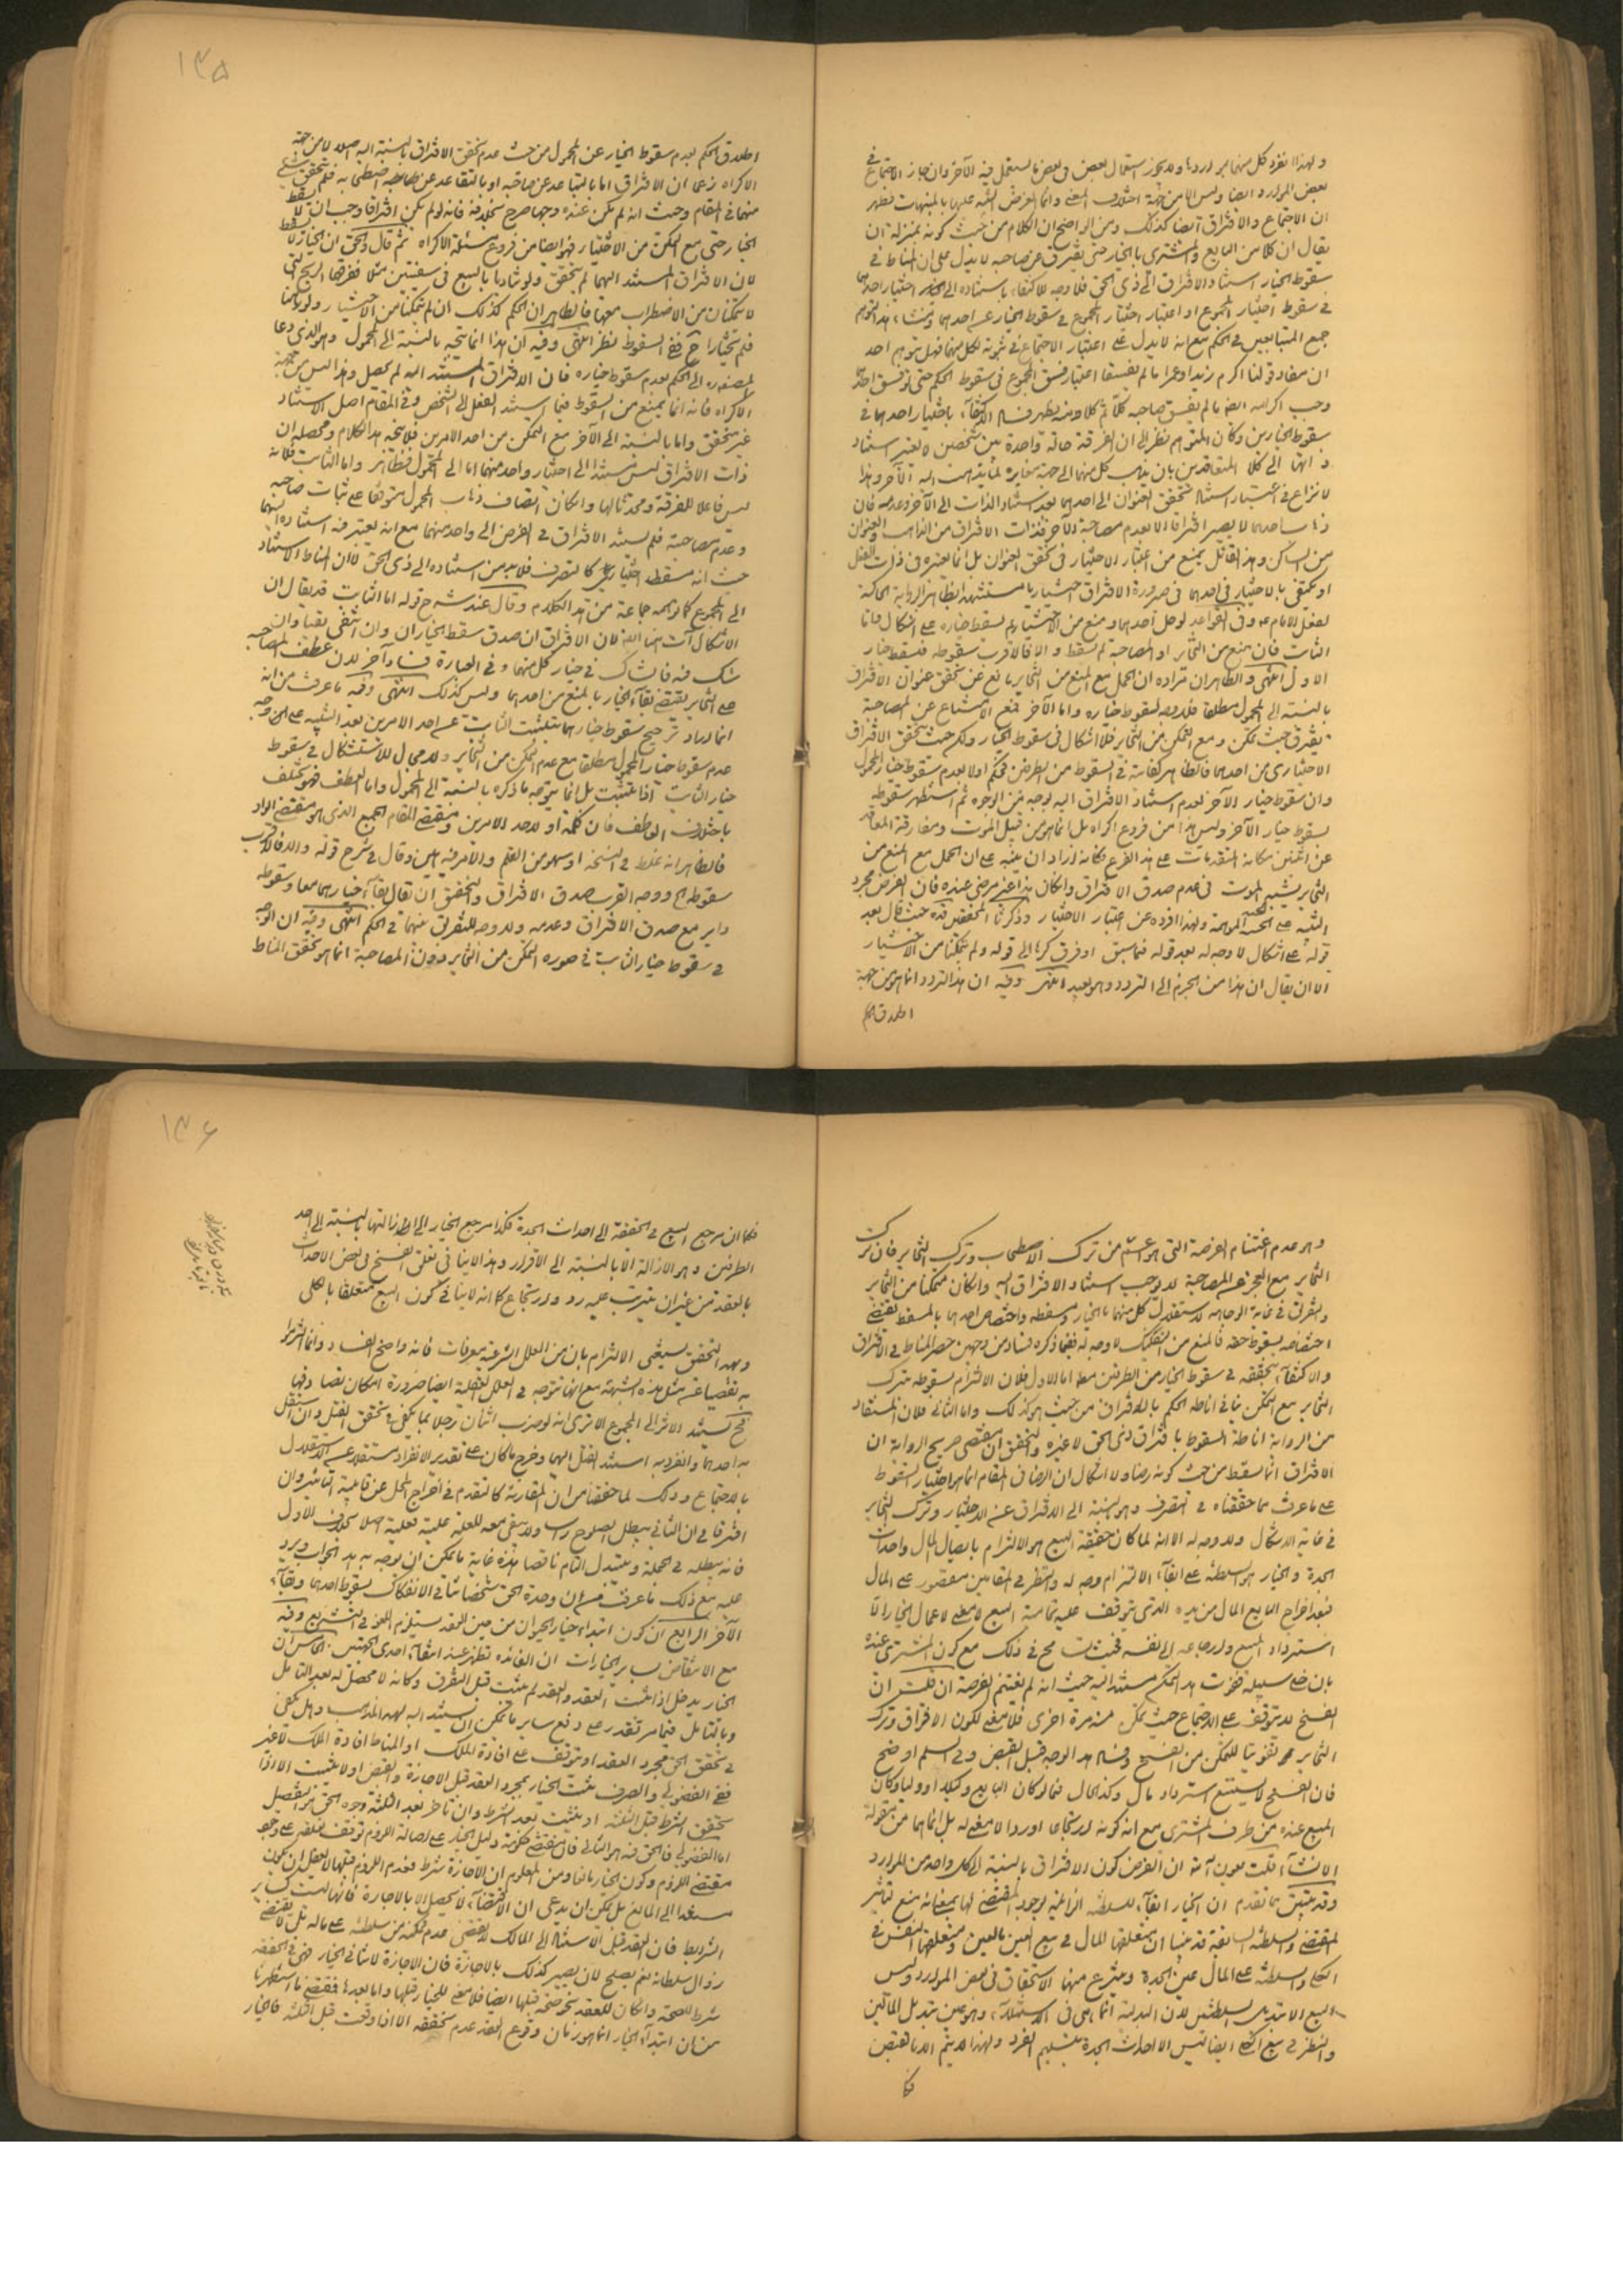 ۱۳۵
ولهذا انفرد كل منهما بموارده ولا يجوز استعمال بعض فى بعض ما يستعمل فيه الآخر وان جاز الاجتماع فى
بعض الموارد ايضا وليس الا من جهة اختلاف المعنى وانما الغرض التنبيه عليها
ان الاجتماع والافتراق ايضا كذلك ومن الواضح ان الكلام من حيث كونه بمنزلة ان
يقال ان كلا من البايع والمشترى بالخيار حتى يفترق عن صاحبه لا يدل على ان المناط فى
سقوط الخيار استناد الافتراق الى ذى الحق فلا وجه للاكتفاء باستناده الى اختيار احدهما
فى سقوط اختيار المجموع او اعتبار اختيار المجموع فى سقوط الخيار عن احدهما ومنشاء هذا التوهم
جمع المتبايعين فى الحكم مع انه لا يدل على اعتبار الاجتماع فى ثبوته لكل منهما فهل يتوهم احد
ان مفاد قولنا اكرم زيدا وعمرا ما لم يفسقا اعتبار فسق المجموع فى سقوط الحكم حتى لو فسق احدهما
وجب اكرامه ايضا ما لم يفسق صاحبه كلا ثم كلا ومنه يظهر فساد الاكتفاء باختيار احدهما فى
سقوط الخيارين وكان المتوهم نظر الى ان الفرقة حالة واحدة بين شخصين لا يعتبر استناد
ذاتها الى كلا المتعاقدين بان يذهب كل منهما الى جهة مغايرة لما يذهب اليه الآخر وهذا
لا نزاع فى اعتبار استناد تحقق العنوان الى احدهما بعد استناد الذات الى الآخر وعدمه فان
ذهاب احدهما لا يصير افتراقا الا بعدم مصاحبة الآخر فذات الافتراق من الذاهب والعنوان
من الساكن وهذا القائل يمنع من اعتبار الاختيار فى تحقق العنوان بل انما يعتبره فى ذات الفعل
او يكتفى بالاختيار فى احدهما فى صيرورة الافتراق اختياريا مستشهدا بظاهر الرواية الحاكية
لفعل الامام ع وفى القواعد لو حمل احدهما ومنع من الاختيار لم يسقط خياره على اشكال واما
الثابت فان منع من التخاير او المصاحبة لم يسقط والا فالاقرب سقوطه فيسقط خيار
الاول انتهى والظاهر ان مراده ان الحمل مع المنع من التخاير مانع عن تحقق عنوان الافتراق
بالنسبة الى المحمول مطلقا فلا وجه لسقوط خياره واما الآخر فمع الامتناع عن المصاحبة
يفترق حيث تمكن ومع التمكن من التخاير فلا اشكال فى سقوط الخيار ولكم حيث تحقق الافتراق
الاختيارى من احدهما فالظاهر كفايته فى السقوط من الطرفين فحكم اولا بعدم سقوط خيار المحمول
وان سقوط خيار الآخر لعدم استناد الافتراق اليه بوجه من الوجوه ثم استظهر سقوطه
بسقوط خيار الآخر وليس هذا من فروع الاكراه بل انما هو من قبيل الموت ومفارقة المعاقد
التخاير يشبه الموت فى عدم صدق الافتراق وان كان هذا غير مرضى عنده فان الغرض مجرد
قوله على اشكال لا وجه له بعد قوله فيما سبق او فرق كرها الى قوله ولم يتمكنا من الاختيار
الا ان يقال ان هذا من الجزم الى التردد وهو بعيد انتهى وفيه ان هذا التردد انما هو من جهة
اطلاق الحكم
اطلاق الحكم بعدم سقوط الخيار عن المحمول من حيث عدم تحقق الافتراق بالنسبة اليه اصلا لا من جهة
الاكراه زعما ان الافتراق اما بالتباعد عن صاحبه او بالتقاعد عن
منهما فى المقام وحيث انه لم يكن عنده وجها صرح بخلافه فانه لو لم يكن افتراقا وجب ان لا يسقط
الخيار حتى مع التمكن من الاختيار فهو ايضا من فروع مسئلة الاكراه ثم قال والحق ان الخيار لا يسقط
لان الافتراق المستند اليهما لم يتحقق ولو تناديا بالبيع فى سفينتين مثلا ففرقهما الريح التى
لا يتمكنان من الاضطراب معها فالظاهر ان الحكم كذلك ان لم يتمكنا من الاختيار ولو تمكنا
فلم يختارا ففى السقوط نظر انتهى وفيه ان هذا انما يتجه بالنسبة الى المحمول وهو الذى دعا
المصنف ره الى الحكم بعدم سقوط خياره فان الافتراق المستند اليه لم يحصل وهذا ليس من جهة
الاكراه فانه انما يمنع من السقوط فيما يستند الفعل الى الشخص وفى المقام اصل الاستناد
غير متحقق واما بالنسبة الى الآخر مع التمكن من احد الامرين فلا يتجه هذا الكلام ومحصله ان
ذات الافتراق ليس مستندا الى اختيار واحد منهما اما الى المحمول فظاهر واما الثابت فلانه
ليس فاعلا للفرقة ومحدثا لها وان كان اتصاف ذهاب المحمول متوقفا على ثبات صاحبه
وعدم مصاحبته فلم يستند الافتراق فى الفرض الى واحد منهما مع انه يعتبر فيه استناده اليهما
حيث انه مسقط اختيارى كالتصرف فلا بد من استناده الى ذى الحق لا ان المناط الاستناد
الى المجموع كما توهمه جماعة من هذا الكلام وقال عند شرح قوله اما الثابت قد يقال ان
الاشكال آت هنا ايضا لان الافتراق ان صدق سقط الخياران وان انتفى بقيا وان
شك فيه فالشك فى خيار كل منهما وفى العبارة فساد آخر لان عطف المصاحبة
على التخاير يقتضى بقاء الخيار بالمنع من احدهما وليس كذلك انتهى وفيه ما عرفت من انه
انما اراد ترجيح سقوط خيارهما بتثبت الثابت عن احد الامرين بعد التنبيه على
عدم سقوط خيار المحمول مطلقا مع عدم التمكن من التخاير ولا مجال للاستشكال فى سقوط
خيار الثابت اذا تثبت بل انما يتوجه ما ذكره بالنسبة الى المحمول واما العطف فهو يختلف
باختلاف العاطف فان كلمة او لاحد الامرين ومقتضى المقام الجمع الذى هو مقتضى الواو
فالظاهر انه غلط فى النسخة او سهو من القلم والامر فيه هين وقال فى شرح قوله والا فالاقرب
سقوطه ووجه القرب صدق الافتراق والتحقيق ان يقال بقاء خيارهما معا وسقوطه
داير مع صدق الافتراق وعدمه ولا وجه للتفريق بينهما فى الحكم انتهى وفيه ان الوجه
فى سقوط خيار الثابت فى صورة التمكن من التخاير دون المصاحبة انما هو تحقق المناط
۱۳۶
وهو عدم اغتنام الفرصة التى هو اعم من ترك الاصطحاب وترك التخاير فان ترك
التخاير مع العجز عن المصاحبة لا يوجب استناد الافتراق اليه وان كان متمكنا من التخاير
والفرق فى غاية الوضاحة لاستقلال كل منهما بالخيار ومسقطه واختصاص احدهما بالمسقط يقتضى
اختصاصه بسقوط حقه فالمنع من التفكيك لا وجه له ففيما ذكره فساد من وجهين حصر المناط فى الافتراق
والاكتفاء بتحققه فى سقوط الخيار من الطرفين معا اما الاول فلان الالتزام بسقوطه بترك
التخاير مع التمكن ينافى اناطة الحكم بالافتراق من حيث هو كذلك واما الثانى فلان المستفاد
من الرواية اناطة السقوط بافتراق ذى الحق لا غيره والتحقيق ان مقتضى صريح الرواية ان
الافتراق انما يسقط من حيث كونه رضا ولا اشكال ان الرضا فى المقام انما هو اختيار السقوط
على ما عرفت مما حققناه فى التصرف وهو بالنسبة الى الافتراق عن الاختيار وترك التخاير
فى غاية الاشكال ولا وجه له الا انه لما كان حقيقة البيع هو الالتزام بايصال المال واحداث
الجدة والخيار هو السلطنة على ابقاء الالتزام وحله والنظر فى المقامين مقصور على المال
فبعد اخراج البايع المال من يده الذى يتوقف عليه تمامية البيع لا معنى لاعمال الخيار الا
استرداد المبيع وارجاعه الى نفسه فحيث تسامح فى ذلك مع كون المشترى عنده
بان خلى سبيله ففوت هذا التمكن مستند اليه حيث انه لم يغتنم الفرصة ان قلت ان
الفسخ لا يتوقف على الاجتماع حيث تمكن منه مرة اخرى فلا معنى لكون الافتراق وترك
التخاير تفويتا للتمكن من الفسخ وفساد هذا الوجه قبل القبض وفى السلم اوضح
فان الفسخ لا يستتبع استرداد مال وكذا الحال فيما لو كان البايع وكيلا او وليا وكان
المبيع عنده من طرف المشترى مع انه كونه استرجاعا او ردا لا معنى له بل انما هما من مقولة
الانشاء قلت بعون الله ان الغرض كون الافتراق بالنسبة الى كل واحد من الموارد
وقد تبين بما تقدم ان الخيار ابقاء للسلطنة الزائلة لوجود المقتضى لها بمعنى انه يمنع تاثير
المقتضى والسلطنة السابقة قد عينا ان متعلقها المال فى بيع العين بالعين ومتعلقها النفس فى
الكلى والسلطنة على المال عين الجدة وينتزع منها الاستحقاق فى بعض الموارد وليس
البيع الا تبديل السلطنتين لان البدلية انما هى فى الاستيلاء وهو عين تبديل المالين
والنظر فى بيع الكلى ايضا ليس الا احداث الجدة بتسليم الفرد ولهذا لا يتم الا بالقبض
فكما
فكما ان مرجع البيع فى الحقيقة الى احداث الجدة فكذا مرجع الخيار الى ازالتها بالنسبة الى احد
الطرفين وهو الازالة الا بالنسبة الى الاقرار وهذا لا ينافى تعلق الفسخ فى بعض الاحداث
بالعقد من غير ان يترتب عليه رد واسترجاع كما انه لا ينافى كون البيع متعلقا بالكلى
وبهذا التحقيق يستغنى الالتزام بان من العلل الشرعية معرفات فانه واضح الفساد وانما التزموا
به تفصيا عن مثل هذه الشبهة مع انها تتوجه فى العلل العقلية ايضا ضرورة امكان تصادفها
فح يستند الاثر الى المجموع الا ترى انه لو ضرب اثنان رجلا بما يكفى فى تحقق القتل وان استقل
به احدهما وانفرد به استند القتل اليهما وخرج ما كان على تقدير الانفراد مستقلا عن الاستقلال
بالاجتماع وذلك لما حققنا من ان المقارنة كالتقدم فى اخراج المحل عن قابلية التاثير وان
افترقا فى ان الثانى يبطل الصلوح راسا ولا يبقى معه للعلة علية فعلية اصلا بخلاف الاول
فانه يبطله فى الجملة ويتبدل التام ناقصا هذه غاية ما يمكن ان يوجه به هذا الجواب ويرد
عليه مع ذلك ما عرفت من ان وحدة الحق شخصا تنافى الانفكاك بسقوط احدهما وبقاء
الآخر الرابع ان كون ابتداء خيار الحيوان من حين العقد يستلزم اللغو فى التشريع وفيه
مع الانتقاض بساير الخيارات ان الفائدة تظهر عند انتفاء احدى الجهتين الخامس ان
الخيار يدخل اذا ثبت العقد والعقد لم يثبت قبل التفرق وكانه لا محصل له بعد التامل
وبالتامل فيما مر تقدر على دفع ساير ما يمكن ان يستند اليه لهذا المذهب وهل يكفى
فى تحقق الحق مجرد العقد او يتوقف على افادة الملك او المناط افادة الملك لا غير
ففى الفضولى والصرف يثبت الخيار بمجرد العقد قبل الاجازة والقبض او لا يثبت الا اذا
تحقق الشرط قبل الثلثة او يثبت بعد الشرط وان تاخر بعد الثلثة وجوه الحق هو التفصيل
اما الفضولى فالحق فيه هو الثانى فان مقتضى حكومة دليل الخيار على اصالة اللزوم توقف
مقتضى اللزوم وكون الخيار مانعا ومن المعلوم ان الاجازة شرط فعدم اللزوم قبلها لا يعقل ان يكون
مستندا الى المانع بل يمكن ان يدعى ان الاقتضاء لا يحصل الا بالاجازة فانها ليست كساير
الشرايط فان العقد قبل الاستناد الى المالك لا يقتضى عدم تمكنه من سلطنته على ماله بل لا يقتضى
زوال سلطانه نعم يصلح لان يصير كذلك بالاجازة فان الاجازة لا تنافى الخيار فهى فى الحقيقة
شرط للصحة وان كان للعقد نحو صحة قبلها ايضا فلا معنى للخيار قبلها واما بعدها فمقتضى ما استظهرنا
من ان ابتداء الخيار انما هو زمان وقوع العقد عدم تحققه الا اذا وقعت قبل الثلثة فالخيار